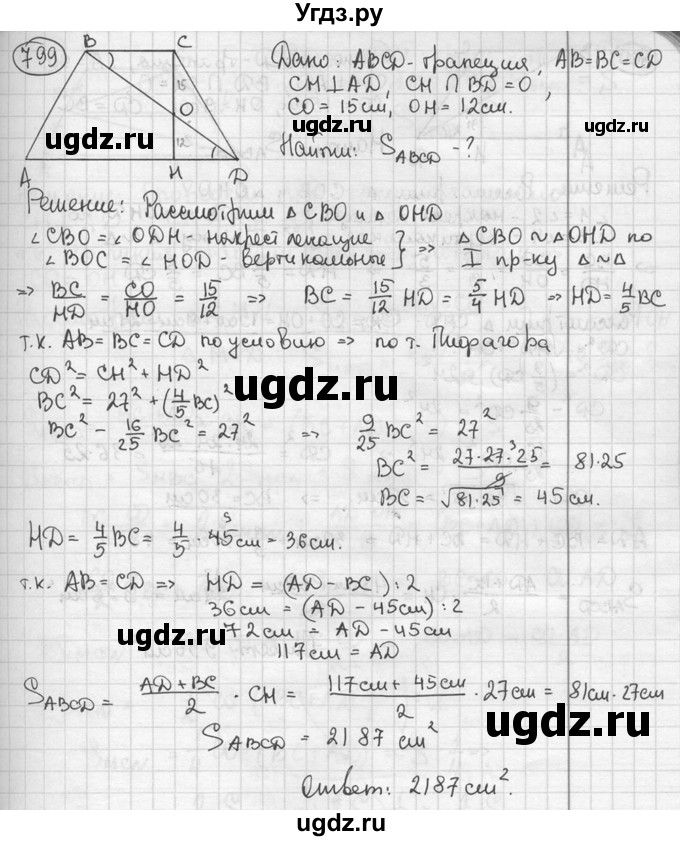 Угdз.ру
799
B C
15
O
12
A H D
Дано: ABCD - трапеция, AB=BC=CD
CH⊥AD, CH ∩ BD=O,
CO = 15см, OH = 12см.
Найти: S_ABCD - ?
ugdz.ru ugdz.ru
Решение: Рассмотрим △ CBO и △ OHD
∠CBO = ∠ODH - накрест лежащие } => △CBO ~ △OHD по
∠BOC = ∠HOD - вертикальные } I пр-ку △~△
=> BC/HD = CO/HO = 15/12 => BC = 15/12 HD = 5/4 HD => HD = 4/5 BC
т.к. AB = BC = CD по условию => по т. Пифагора
CD² = CH² + HD²
ugdz.ru
BC² = 27² + (4/5 BC)²
BC² - 16/25 BC² = 27² => 9/25 BC² = 27²
BC² = 27·27·25/9 = 81·25
BC = √81·25 = 45см.
ugdz.ru
HD = 4/5 BC = 4/5 · 45см = 36см.
т.к. AB = CD => HD = (AD - BC) : 2
36см = (AD - 45см) : 2
ugdz.ru
72см = AD - 45см
117см = AD
S_ABCD = (AD + BC)/2 · CH = (117см + 45см)/2 · 27см = 81см · 27см
ugdz.ru
S_ABCD = 2187 см²
ugdz.ru
Ответ: 2187см².
ugdz.ru